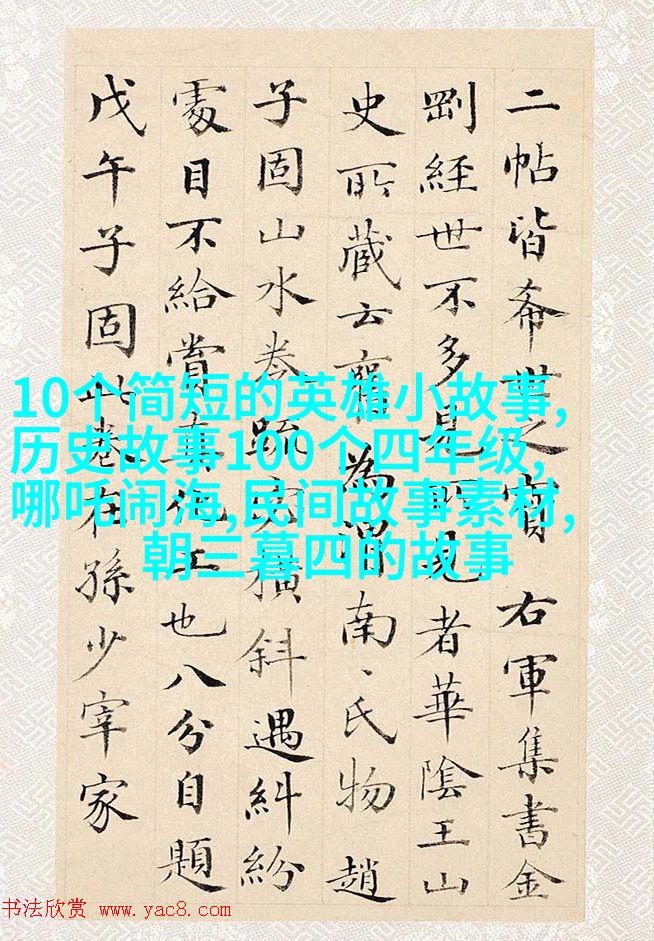 二帖皆希世之寳右軍集書金
剛經世不多見所見者華陰王山
史所藏云雍為渭南南氏物趙
子固山水卷疏密橫斜遇糾紛
處目不給賞真化工也八分自題
戊午子固此卷在孫少宰家
10个简短的英雄小故事,
历史故事100个四年级,
哪吒闹海,民间故事素材,
朝三暮四的故事
书法欣赏 www.yac8.com